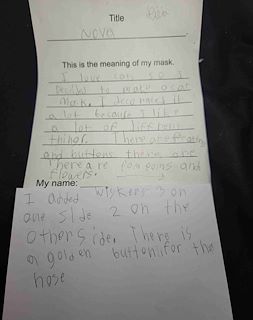 Title
Nova
This is the meaning of my mask.
I love cats so I
decided to make a cat
mask. I decorated it
a lot because I like
a lot of different
things. There are feathers
and buttons there are
There are pom poms and
flowers.
My name:
I added wiskers 3 on
one side 2 on the
other side. There is
a golden button for the
nose